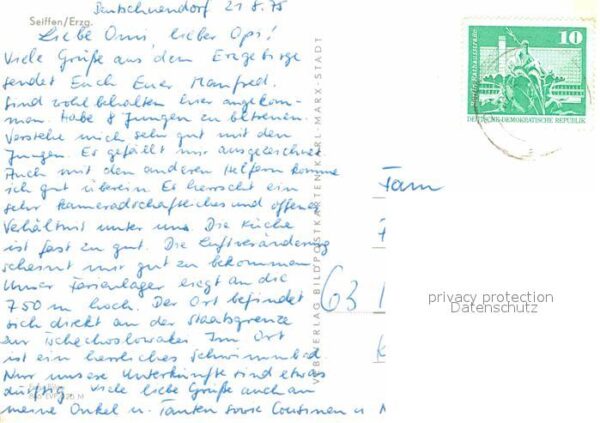 Deutschneudorf 21.8.75
Seiffen/Erzg.
Liebe Omi, lieber Opi!
Viele Grüße aus dem Erzgebirge
sendet Euch Euer Manfred.
Sind wohlbehalten hier angekom-
men. Habe 8 Jungen zu betreuen.
Verstehe mich sehr gut mit den
Jungen. Es gefällt mir ausgezeichnet
Auch mit den anderen Helfern komme
ich gut überein. Es herrscht ein
sehr kameradschaftliches und offenes
Verhältnis unter uns. Die Küche
ist fast zu gut. Die Luftveränderung
scheint mir gut zu bekommen.
Unser Ferienlager liegt an die
750 m hoch. Der Ort befindet
sich direkt an der Staatsgrenze
zur Tschechoslowakei. Im Ort
ist ein herrliches Schwimmbad.
Nur unsere Unterkünfte sind etwas
dürftig. Viele liebe Grüße auch an
meine Onkel u. Tanten sowie Cousinen u. N
VEB VERLAG BILDPOSTKARTEN KARL-MARX-STADT
10
Berlin, Rathausstraße
DEUTSCHE DEMOKRATISCHE REPUBLIK
Fam
63
privacy protection
Datenschutz